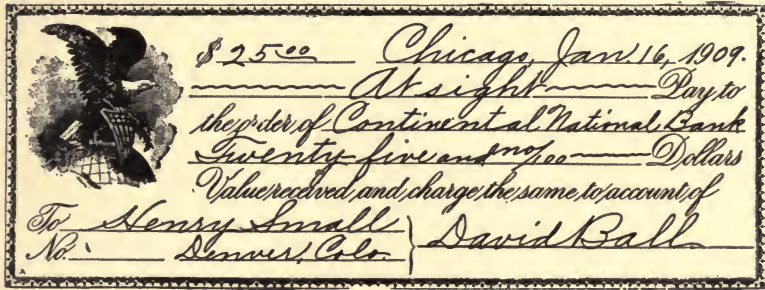 $ 25 00 Chicago, Jan. 16, 1909.
At sight Pay to
the order of Continental National Bank
Twenty-five and no/100 Dollars
Value received and charge the same to account of
To Henry Small
David Ball
No. Denver, Colo.